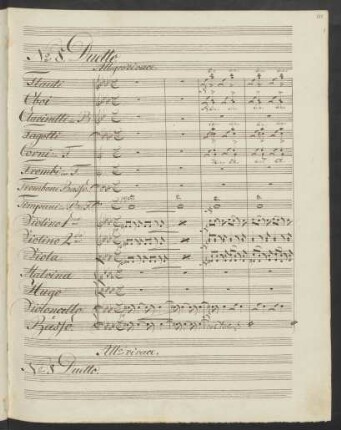 No. 8. Duetto
Allegro vivace.
Flauti
Oboi
Clarinetti in B
Fagotti
Corni in F
Trombi in F
Trombone Basso
Timpani in
Violino 1mo
Violino 2do
Viola
Malvina
Hugo
Violoncello
Basso
Allo vivace.
No. 8 Duetto.